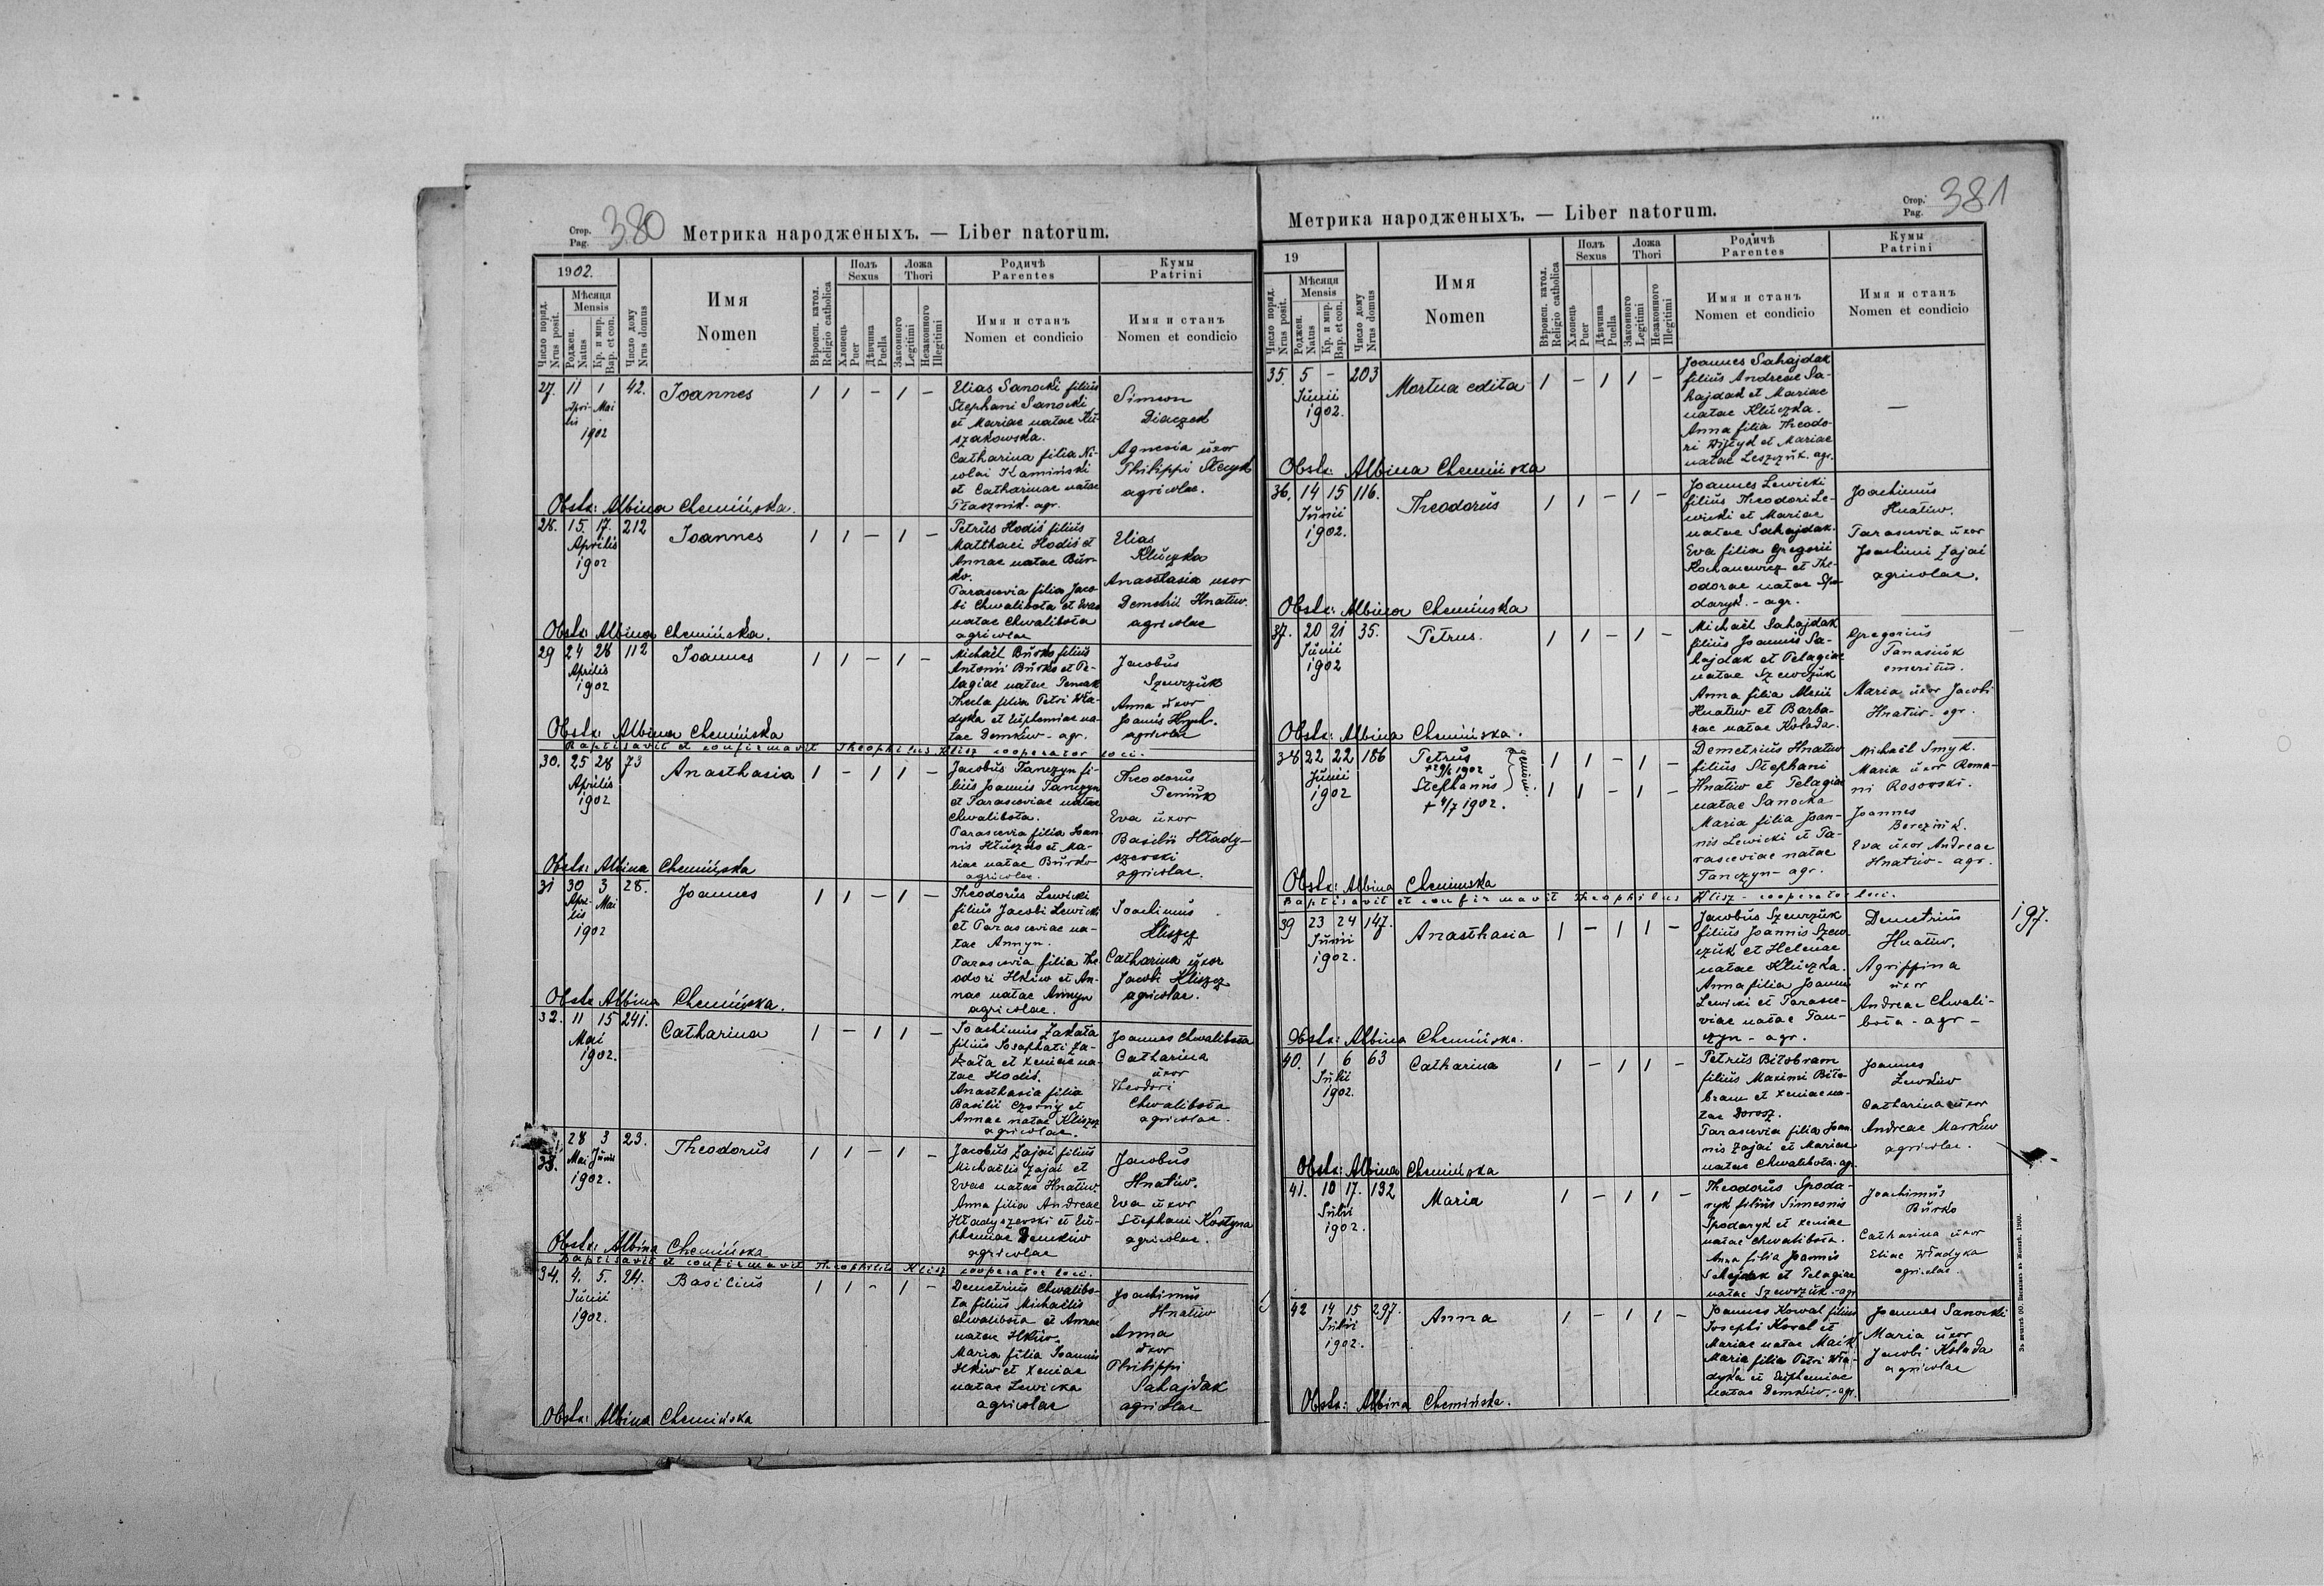 Стор.
Pag. 380 Метрика народженыхъ. — Liber natorum.
1902.
Число поряд.
Nrus posit.
Мѣсяця
Mensis
Роджен.
Natus
Кр. и мир.
Bap. et con.
Число дому
Nrus domus
Имя
Nomen
Вѣроисп. катол.
Religio catholica
Полъ
Sexus
Хлопець
Puer
Дѣвчина
Puella
Ложа
Thori
Законного
Legitimi
Незаконного
Illegitimi
Родичѣ
Parentes
Имя и станъ
Nomen et condicio
Кумы
Patrini
Имя и станъ
Nomen et condicio
27. 11 1 42. Joannes 1 1 - 1 -
Apri- Mai
lis
1902
Elias Sanocki filius
Stephani Sanocki
et Mariae natae
Catharina filia Ni-
colai Kamiński
et Catharinae natae
Ptasznik. agr.
Simeon
Diaczek
Agnesia uxor
Philippi
agricolae.
Obstx: Albina Chemińska.
28. 15. 17. 212 Joannes 1 1 - 1 -
Aprilis
1902
Petrus Hodiś filius
Matthaei Hodiś et
Annae natae Bur-
ko.
Parascevia filia Jaco-
bi Chwalibota et Evae
natae Chwalibota
agricolae
Elias
Kluczka
Anasthasia uxor
Demetrii Hnatiw.
agricolae
Obstx: Albina Chemińska.
29 24 28 112 Joannes 1 1 - 1 -
Aprilis
1902
Michaël Burko filius
Antonii Burko et Pe-
lagiae natae
Thecla filia Petri Wła-
dyka et Euphemiae na-
tae Demkiw - agr.
Jacobus
Szewczuk
Anna uxor
Joannis
agricolae
Obstx: Albina Chemińska
Baptisavit et confirmavit Theophilus Klisz cooperator loci.
30. 25 28 73 Anasthasia 1 - 1 1 -
Aprilis
1902
Jacobus Tanczyn fi-
lius Joannis Tanczyn
et Parasceviae natae
Chwalibota.
Parascevia filia Joan-
nis et Ma-
riae natae Burko
agricolae.
Theodorus
Eva uxor
Basilii Hłady-
szewski
agricolae.
Obstx: Albina Chemińska
31 30 3 28. Joannes 1 1 - 1 -
Apri- Mai
lis
1902
Theodorus Lewicki
filius Jacobi Lewicki
et Parasceviae na-
tae Annyn.
Parascevia filia The-
odori Hkiw et An-
nae natae Annyn
agricolae.
Joachimus
Kliszcz
Catharina uxor
Jacobi Kliszcz
agricolae.
Obstx Albina Chemińska.
32. 11 15 241. Catharina 1 - 1 1 -
Mai
1902.
Joachimus Zakała
filius Josaphati Za-
kała et Xeniae na-
tae Hodiś.
Anasthasia filia
Basilii Czorny et
Annae natae Kliszcz
agricolae.
Joannes Chwalibota
Catharina
uxor
Theodori
Chwalibota
agricolae.
33. 28 3 23. Theodorus 1 1 - 1 -
Mai Junii
1902.
Jacobus Zajaś filius
Michaëlis Zajaś et
Evae natae Hnatiw.
Anna filia Andreae
Hładyszewski et Eu-
phemiae Demkiw
agricolae
Jacobus
Hnatiw.
Eva uxor
Stephani Kostyna
agricolae.
Obstx: Albina Chemińska
Baptisavit et confirmavit Theophilus Klisz cooperator loci.
34. 4. 5. 24. Basilius 1 1 - 1 -
Junii
1902.
Demetrius Chwalibo-
ta filius Michaëlis
Chwalibota et Annae
natae Hkiw.
Maria filia Joannis
Hkiw et Xeniae
natae Lewicka
agricolae
Joachimus
Hnatiw
Anna
uxor
Philippi
Sahajdak
agricolae
Obstx: Albina Chemińska
Метрика народженыхъ. — Liber natorum.
Стор.
Pag. 381
19
Число поряд.
Nrus posit.
Мѣсяця
Mensis
Роджен.
Natus
Кр. и мир.
Bap. et con.
Число дому
Nrus domus
Имя
Nomen
Вѣроисп. катол.
Religio catholica
Полъ
Sexus
Хлопець
Puer
Дѣвчина
Puella
Ложа
Thori
Законного
Legitimi
Незаконного
Illegitimi
Родичѣ
Parentes
Имя и станъ
Nomen et condicio
Кумы
Patrini
Имя и станъ
Nomen et condicio
35. 5 - 203 Mortua edita 1 - 1 1 -
Junii
1902.
Joannes Sahajdak
filius Andreae Sa-
hajdak et Mariae
natae Kluczka.
Anna filia Theodo-
ri et Mariae
natae Leszczuk. agr.
—
Obstx: Albina Chemińska
36. 14 15 116. Theodorus 1 1 - 1 -
Junii
1902.
Joannes Lewicki
filius Theodori Le-
wicki et Mariae
natae Sahajdak.
Eva filia Gregorii
Kochanewicz et The-
odorae natae Spo-
daryk. - agr.
Joachimus
Hnatiw.
Parascevia uxor
Joachimi Zajaś
agricolae.
Obstx: Albina Chemińska
37. 20 21 35. Petrus. 1 1 - 1 -
Junii
1902
Michaël Sahajdak
filius Joannis Sa-
hajdak et Pelagiae
natae Szewczuk
Anna filia Alexii
Hnatiw et Barba-
rae natae Kolada.
Gregorius
Panasiuk
emeritus.
Maria uxor Jacobi
Hnatiw. agr.
Obstx: Albina Chemińska.
38 22 22 186 Petrus 1 1 - 1 -
Junii
1902
1902
Stephanus 1 1 - 1 -
gemini.
+ 4/7 1902.
Demetrius Hnatiw
filius Stephani
Hnatiw et Pelagiae
natae Sanocka
Maria filia Joan-
nis Lewicki et Pa-
rasceviae natae
Tanczyn - agr.
Michaël Smyk.
Maria uxor Roma-
ni Rosowski.
Joannes
Bereziuk.
Eva uxor Andreae
Hnatiw - agr.
Obstx: Albina Chemińska
Baptisavit et confirmavit Theophilus Klisz - cooperator loci.
39 23 24 147. Anasthasia 1 - 1 1 -
Junii
1902.
Jacobus Szewczuk
filius Joannis Szew-
czuk et Helenae
natae Kluczka.
Anna filia Joannis
Lewicki et Parasce-
viae natae Tan-
czyn - agr.
Demetrius
Hnatiw.
Agrippina
uxor
Andreae Chwali-
bota - agr -
197.
Obstx: Albina Chemińska.
40. 1 6 63 Catharina 1 - 1 1 -
Julii
1902.
Petrus Biłobram
filius Maximi Biło-
bram et Xeniae na-
tae Dorosz.
Parascevia filia Joan-
nis Zajaś et Mariae
natae Chwalibota. agr.
Joannes
Lewkiw
Catharina uxor
Andreae Markiw
agricolae.
Obstx: Albina Chemińska
41. 10 17. 132 Maria 1 - 1 1 -
Julii
1902.
Theodorus Spoda-
ryk filius Simeonis
Spodaryk et Xeniae
natae Chwalibota.
Anna filia Joannis
Sahajdak et Pelagiae
natae Szewczuk - agr
Joachimus
Burko
Catharina uxor
Eliae Władyka
agricolae.
42 14 15 297. Anna 1 - 1 1 -
Julii
1902.
Joannes Kowal filius
Josephi Kowal et
Mariae natae
Maria filia Petri Wła-
dyka et Euphemiae
natae Demkiw. - agr.
Joannes Sanocki
Maria uxor
Jacobi Kolada
agricolae
Obstx: Albina Chemińska.